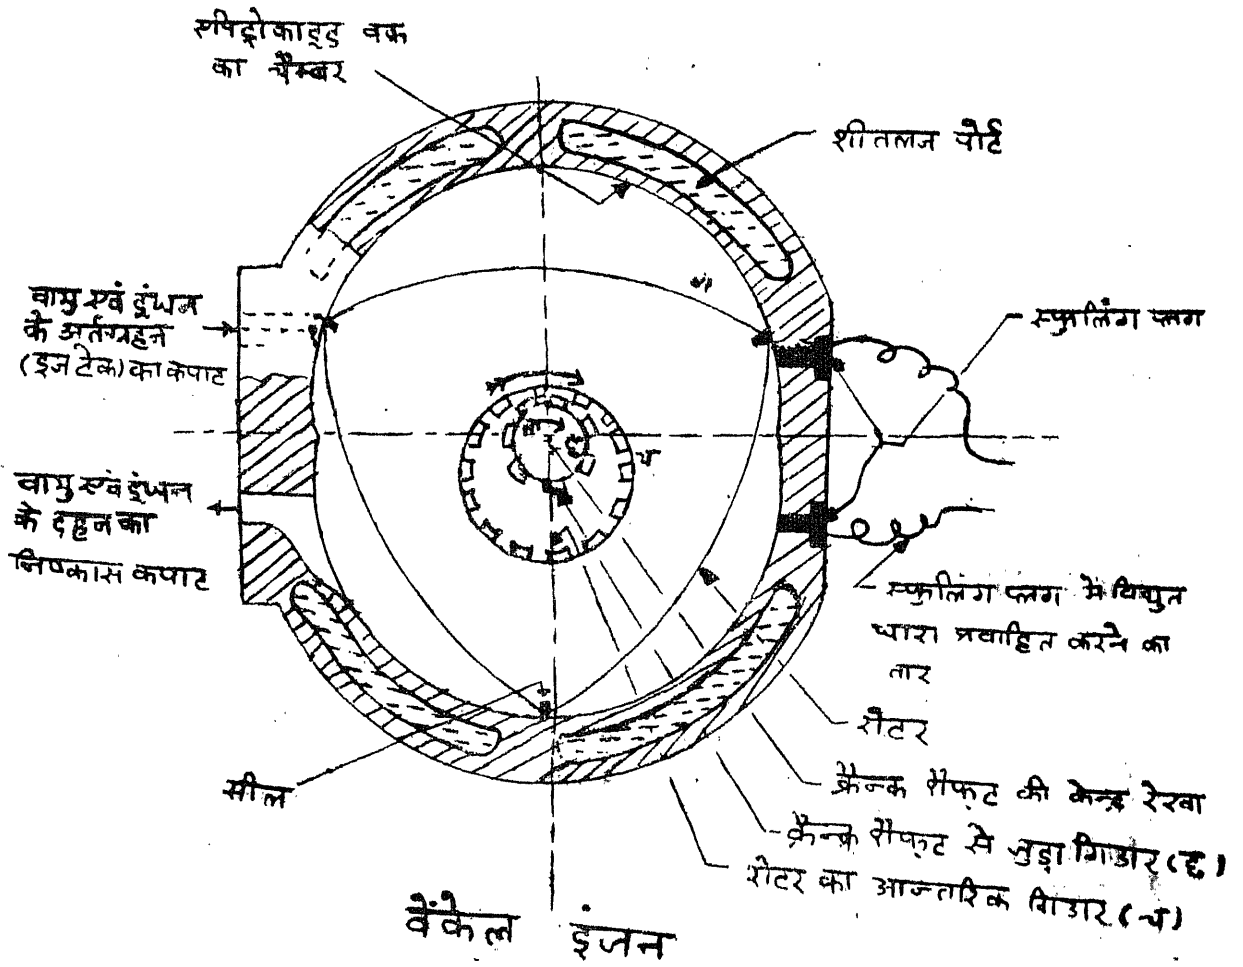 एपिट्रोकाइड वक्र
का चैम्बर
शीतलन पोर्ट
वायु एवं ईंधन
के अर्तग्रहन
(इनटेक) का कपाट
स्फुलिंग प्लग
वायु एवं ईंधन
के दहन का
निष्कास कपाट
च
स्फुलिंग प्लग में विद्युत
धारा प्रवाहित करने का
तार
रोटर
सील
क्रैन्क शैफ्ट की केन्द्र रेखा
क्रैन्क शैफ्ट से जुड़ा गिडार (छ)
रोटर का आन्तरिक गिडार (च)
वैंकेल इंजन